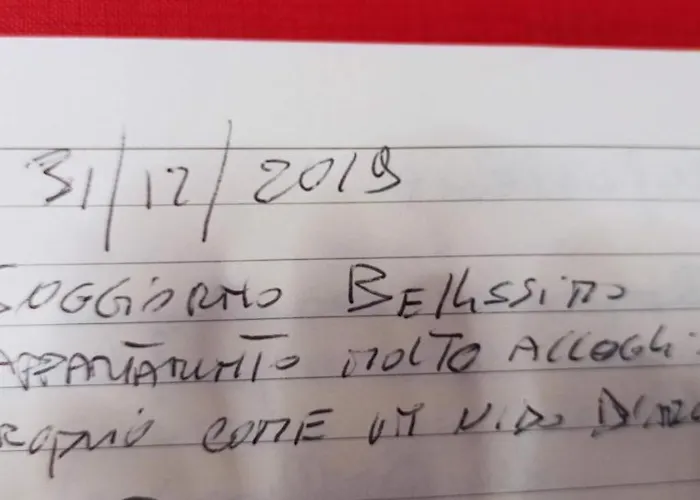 31/12/2019
SOGGIORNO BELLISSIMO
APPARTAMENTO MOLTO ACCOGLI
PROPRIO COME UN NIDO